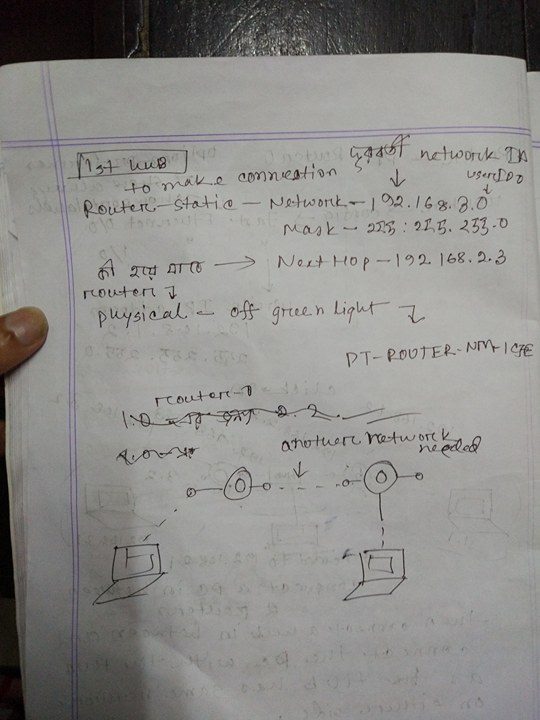 1st hub
to make connection দূরবর্তী network ID
userID 0
Router - static - Network - 192.168.3.0
Mask - 255.255.255.0
কী হয়ে যাবে → Next Hop - 192.168.2.3
router
physical - off green light
PT-ROUTER-NM-1CFE
router-0
1.0
another network
needed